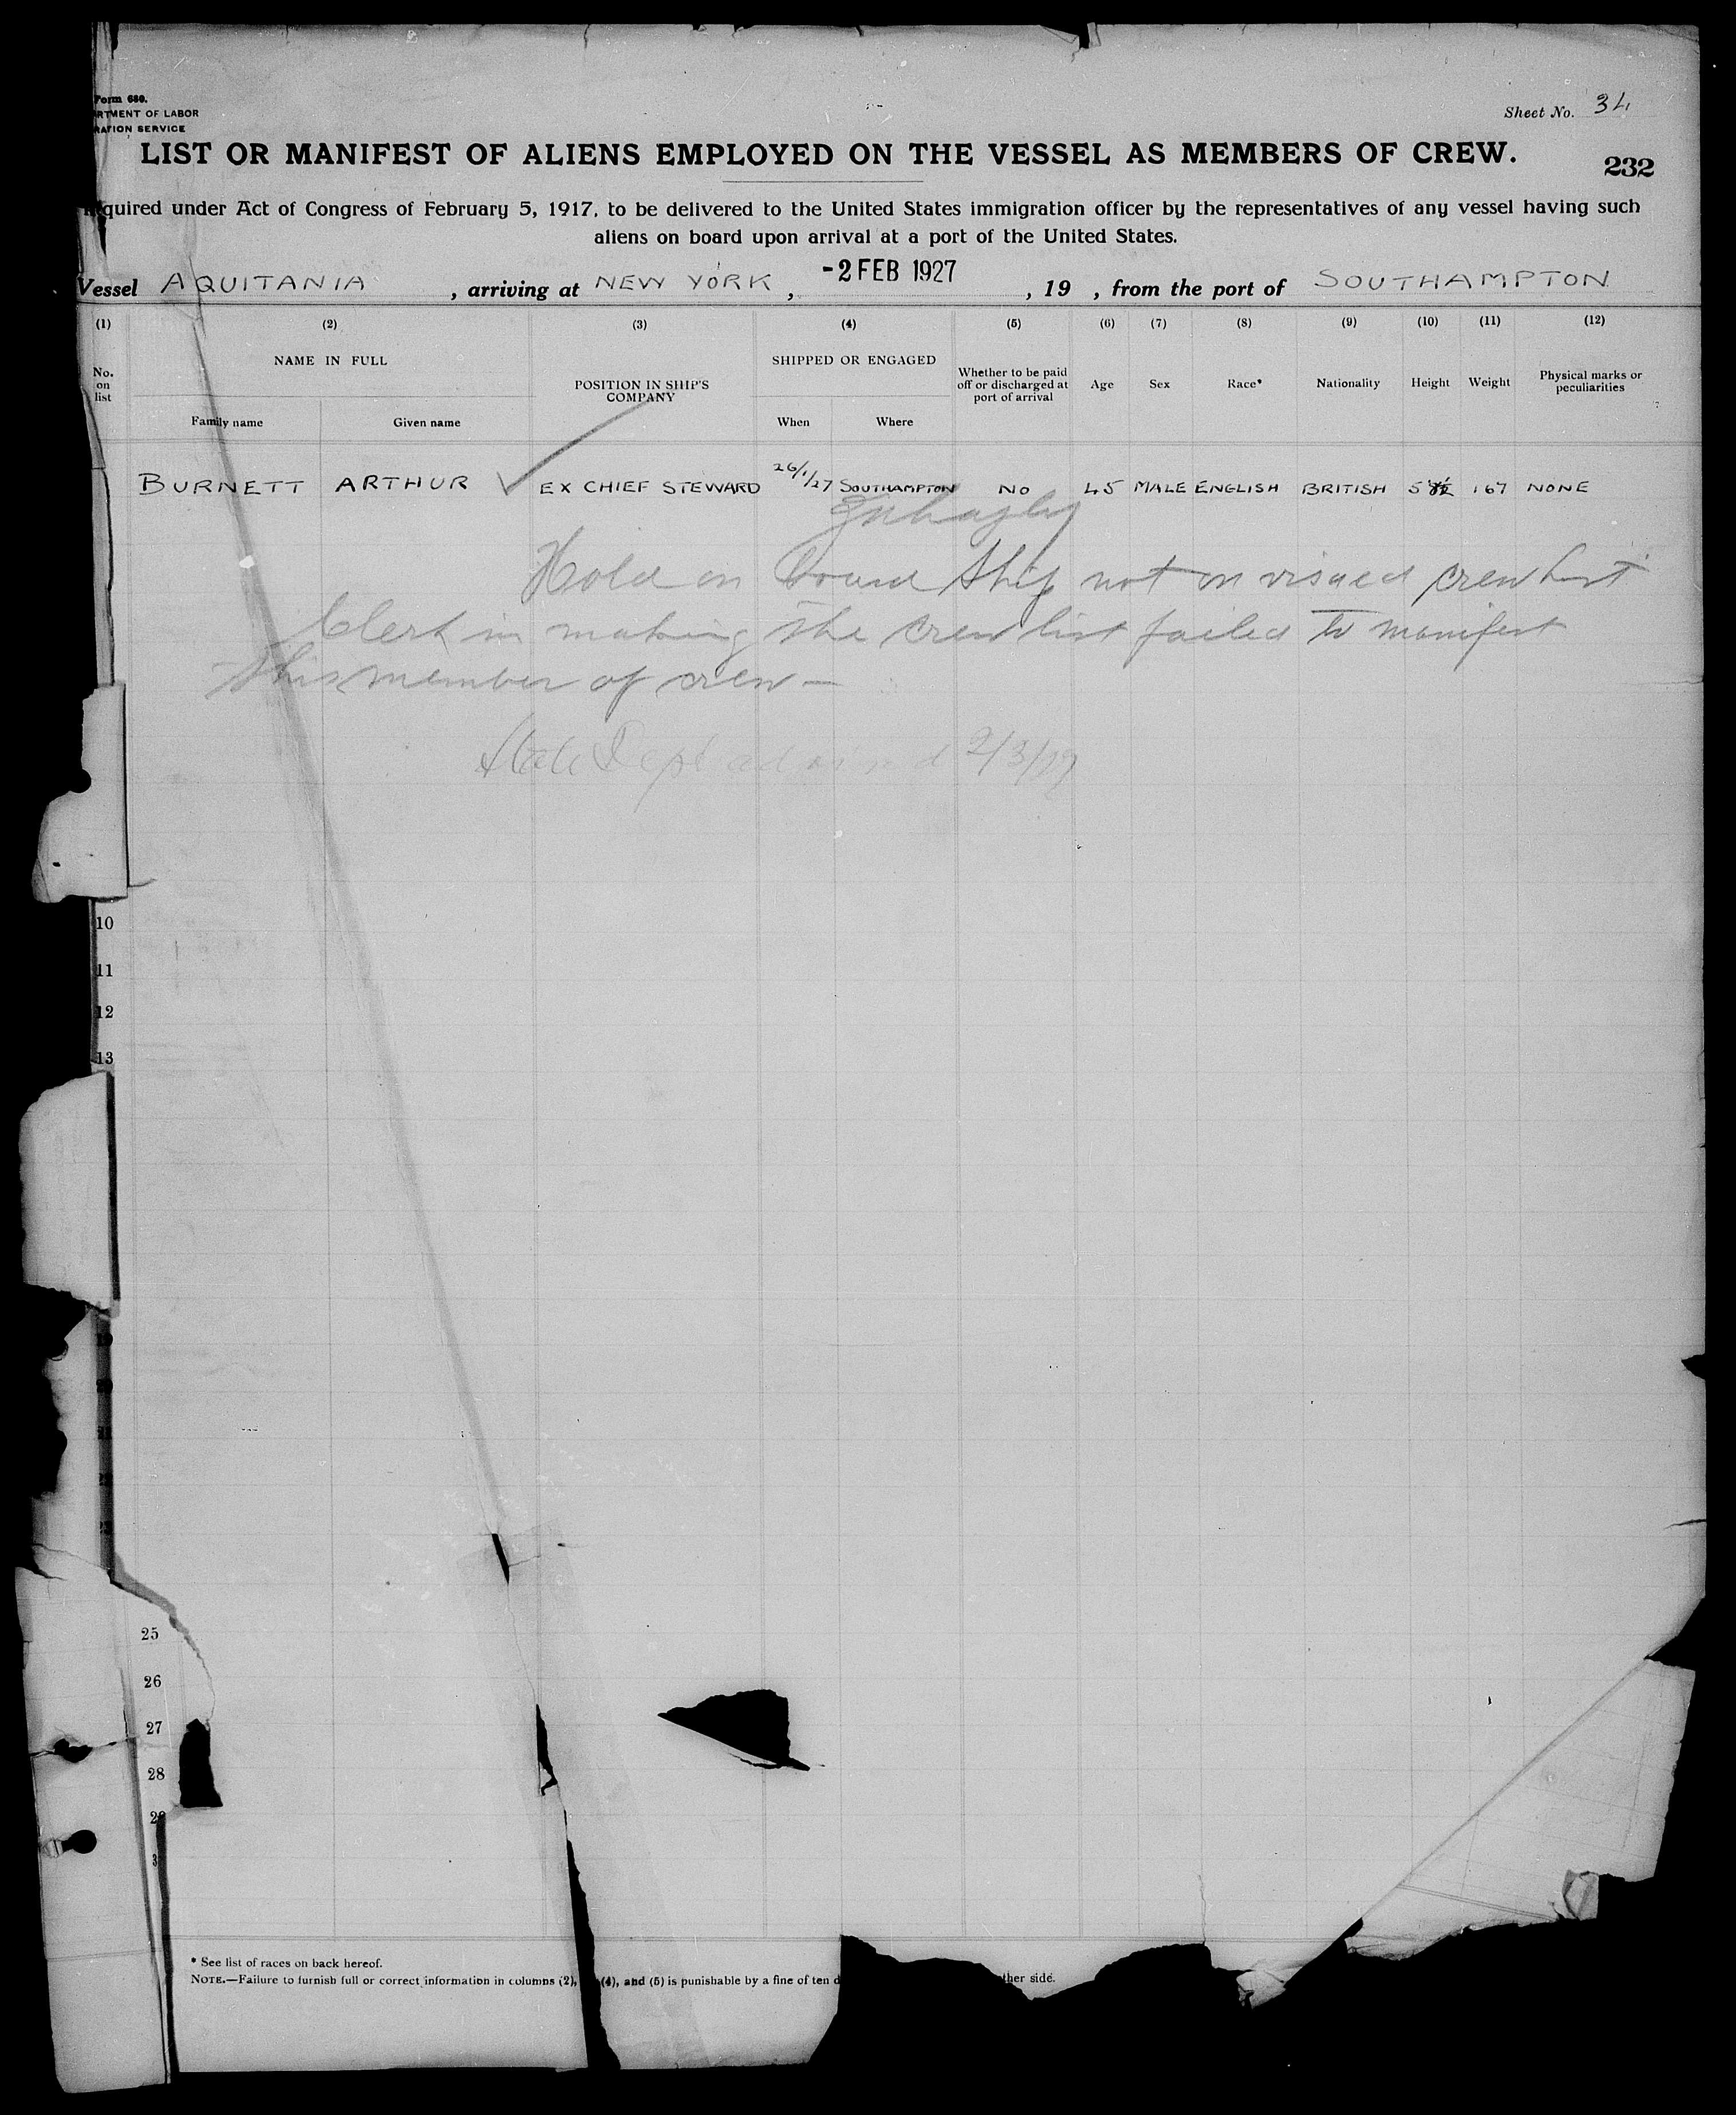 Form 680.
RTMENT OF LABOR
RATION SERVICE
Sheet No. 34
LIST OR MANIFEST OF ALIENS EMPLOYED ON THE VESSEL AS MEMBERS OF CREW.
232
quired under Act of Congress of February 5, 1917, to be delivered to the United States immigration officer by the representatives of any vessel having such
aliens on board upon arrival at a port of the United States.
Vessel AQUITANIA , arriving at NEW YORK , -2 FEB 1927 , 19 , from the port of SOUTHAMPTON
(1) (2) (3) (4) (5) (6) (7) (8) (9) (10) (11) (12)
No. on list NAME IN FULL Family name Given name POSITION IN SHIP'S COMPANY SHIPPED OR ENGAGED When Where Whether to be paid off or discharged at port of arrival Age Sex Race* Nationality Height Weight Physical marks or peculiarities
BURNETT ARTHUR EX CHIEF STEWARD 26/1/27 SOUTHAMPTON NO 45 MALE ENGLISH BRITISH 5 167 NONE
Hold on board ship not on visaed crew list
Clerk in making the crew list failed to manifest
this member of crew —
State Dept advised 2/3/27
10
11
12
13
25
26
27
28
29
3
* See list of races on back hereof.
NOTE.—Failure to furnish full or correct information in columns (2), (4), and (5) is punishable by a fine of ten d ther side.